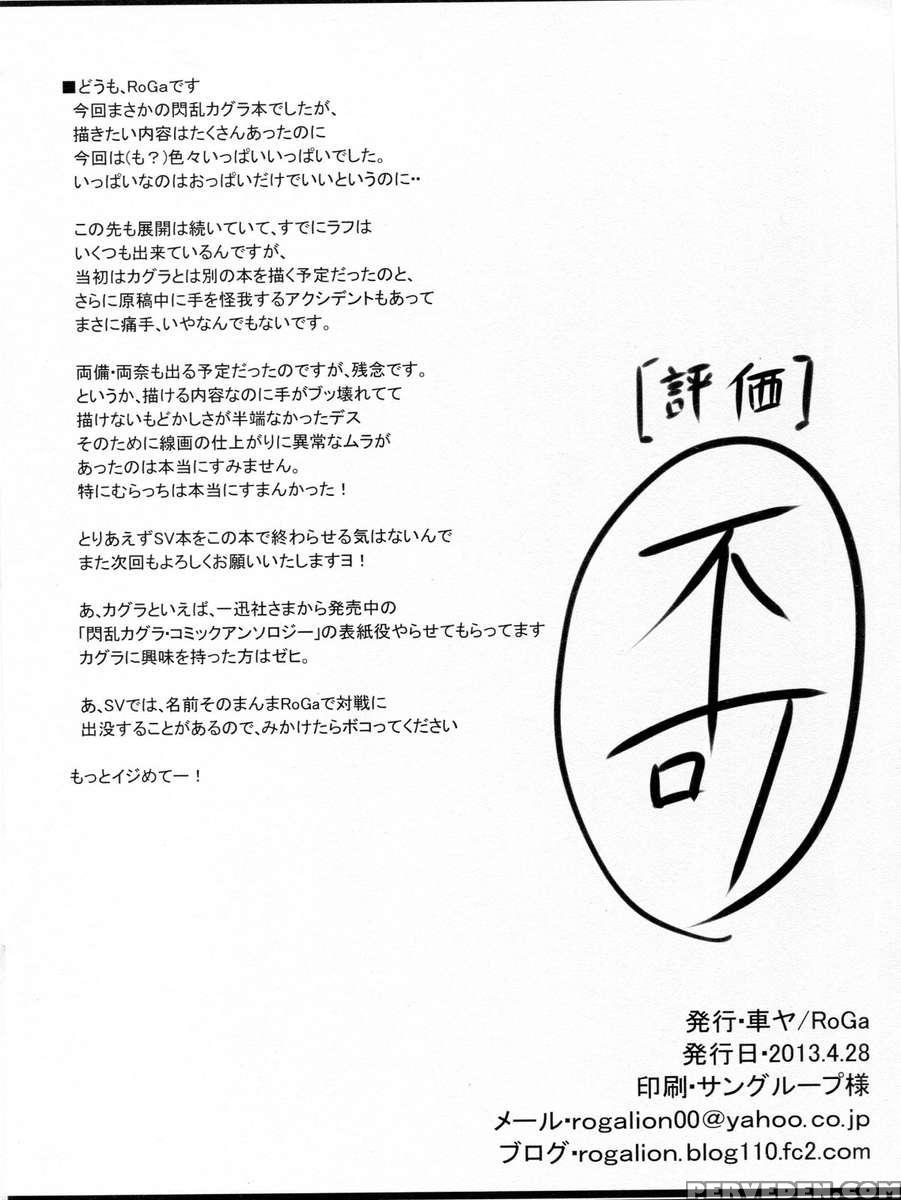 ■どうも、RoGaです
今回まさかの閃乱カグラ本でしたが、
描きたい内容はたくさんあったのに
今回は(も?)色々いっぱいいっぱいでした。
いっぱいなのはおっぱいだけでいいというのに‥
この先も展開は続いていて、すでにラフは
いくつも出来ているんですが、
当初はカグラとは別の本を描く予定だったのと、
さらに原稿中に手を怪我するアクシデントもあって
まさに痛手、いやなんでもないです。
両備・両奈も出る予定だったのですが、残念です。
というか、描ける内容なのに手がブッ壊れてて
描けないもどかしさが半端なかったデス
そのために線画の仕上がりに異常なムラが
あったのは本当にすみません。
特にむらっちは本当にすまんかった!
とりあえずSV本をこの本で終わらせる気はないんで
また次回もよろしくお願いいたしますヨ!
あ、カグラといえば、一迅社さまから発売中の
「閃乱カグラ・コミックアンソロジー」の表紙役やらせてもらってます
カグラに興味を持った方はゼヒ。
あ、SVでは、名前そのまんまRoGaで対戦に
出没することがあるので、みかけたらボコってください
もっとイジめてー!
[評価]
不可
発行・車ヤ/RoGa
発行日・2013.4.28
印刷・サングループ様
メール・rogalion00@yahoo.co.jp
ブログ・rogalion.blog110.fc2.com
PERVEDEN.COM